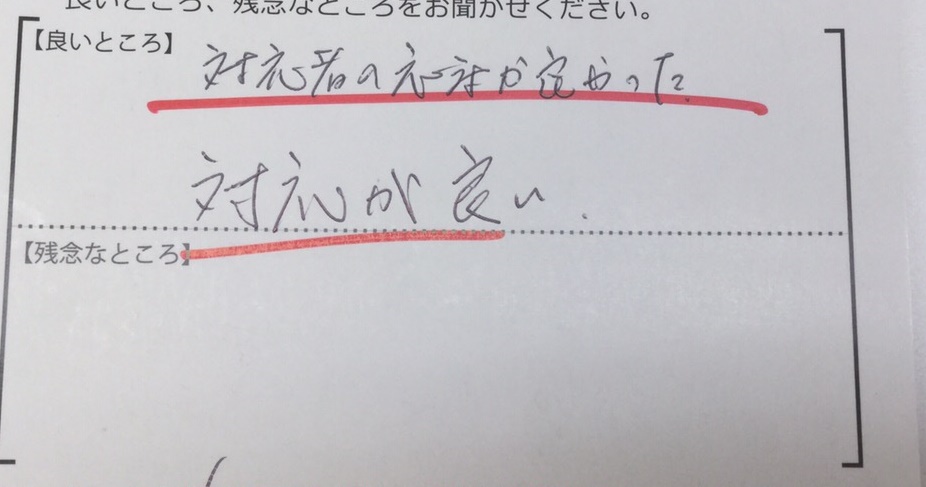 良いところ、残念なところをお聞かせください。
【良いところ】
対応者の応対が良かった。
対応が良い.
【残念なところ】